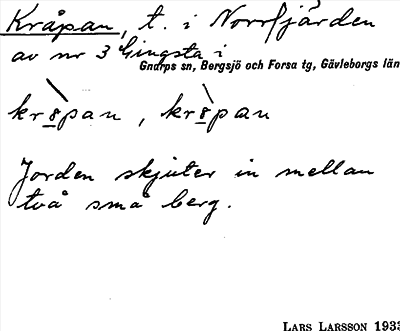 Kråpan, t. i Norrfjärden
av nr 3 Gingsta i
Gnarps sn, Bergsjö och Forsa tg, Gävleborgs län
kr8̲pan, kr8̲pan
Jorden skjuter in mellan
två små berg.
LARS LARSSON 1933